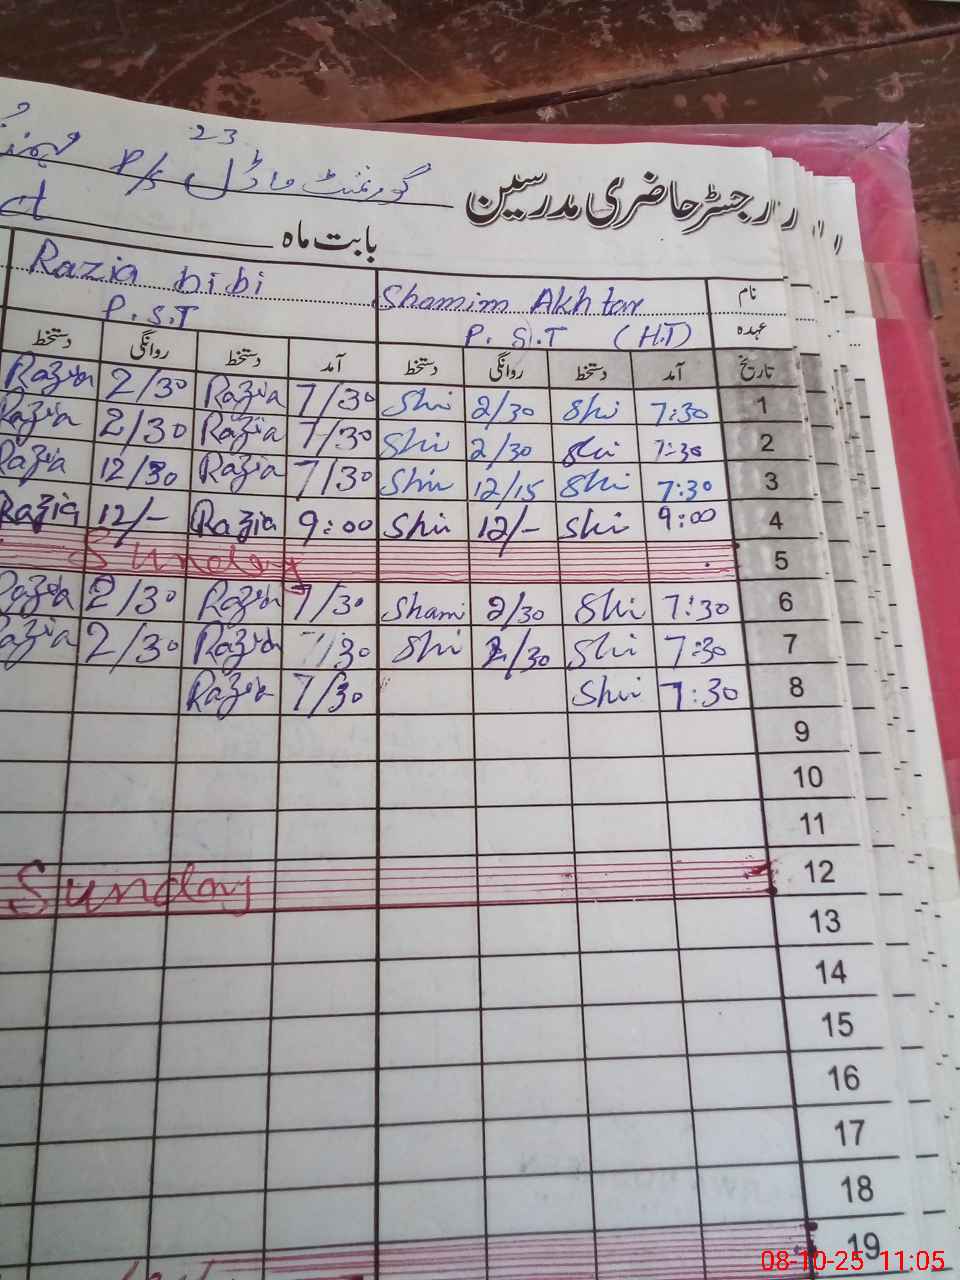 23
رجسٹر حاضری مدرسین گورنمنٹ ماڈل P/S
بابت ماہ ct
نام Shamim Akhtar Razia bibi
عہدہ P.S.T (H.T) P.S.T
تاریخ آمد دستخط روانگی دستخط آمد دستخط روانگی دستخط
1 7:30 Shi 2/30 Shi 7/30 Razia 2/30 Razia
2 7:30 Shi 2/30 Shi 7/30 Razia 2/30 Razia
3 7:30 Shi 12/15 Shi 7/30 Razia 12/30 Razia
4 9:00 Shi 12/- Shi 9:00 Razia 12/- Razia
5 Sunday
6 7:30 Shi 2/30 Shami 7/30 Razia 2/30 Razia
7 7:30 Shi 2/30 Shi 7/30 Razia 2/30 Razia
8 7:30 Shi 7/30 Razia
9
10
11
12 Sunday
13
14
15
16
17
18
19
08-10-25 11:05